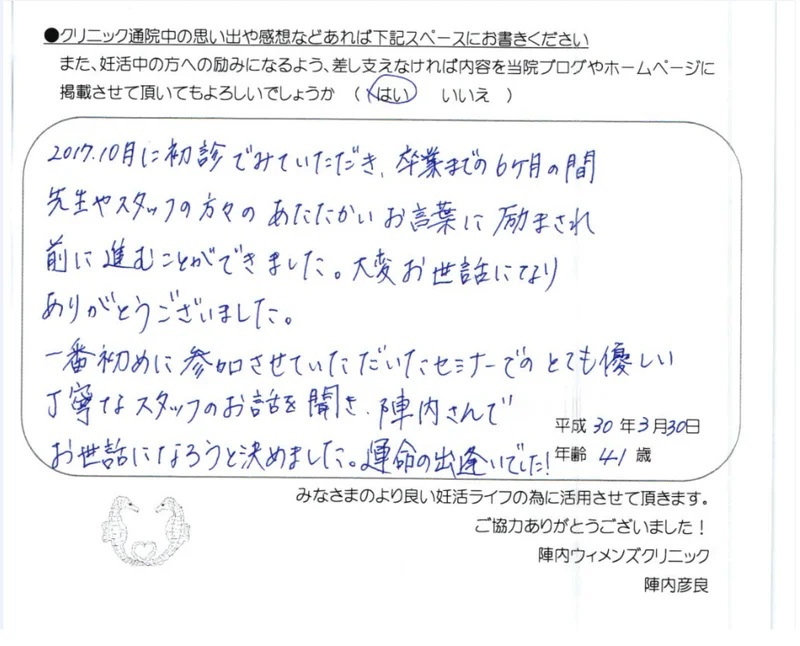 ●クリニック通院中の思い出や感想などあれば下記スペースにお書きください
また、妊活中の方への励みになるよう、差し支えなければ内容を当院ブログやホームページに
掲載させて頂いてもよろしいでしょうか （ はい いいえ ）
2017.10月に初診でみていただき、卒業までの6ケ月の間
先生やスタッフの方々のあたたかいお言葉に励まされ
前に進むことができました。大変お世話になり
ありがとうございました。
一番初めに参加させていただいたセミナーでのとても優しい
丁寧なスタッフのお話を聞き、陣内さんで
お世話になろうと決めました。運命の出逢いでした!
平成 30 年 3 月 30日
年齢 41 歳
みなさまのより良い妊活ライフの為に活用させて頂きます。
ご協力ありがとうございました！
陣内ウィメンズクリニック
陣内彦良